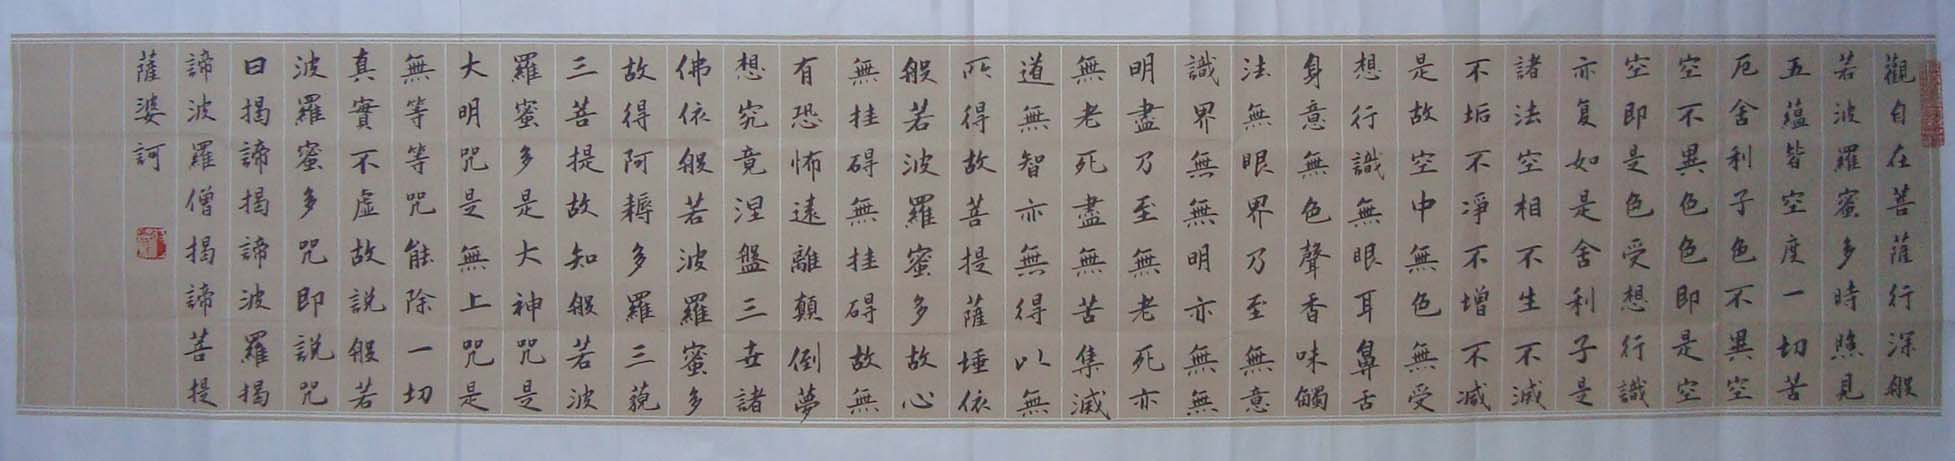 觀自在菩薩行深般
若波羅蜜多時照見
五蘊皆空度一切苦
厄舍利子色不異空
空不異色色即是空
空即是色受想行識
亦复如是舍利子是
諸法空相不生不滅
不垢不凈不增不減
是故空中無色無受
想行識無眼耳鼻舌
身意無色聲香味觸
法無眼界乃至無意
識界無無明亦無無
明盡乃至無老死亦
無老死盡無苦集滅
道無智亦無得以無
所得故菩提薩埵依
般若波羅蜜多故心
無挂碍無挂碍故無
有恐怖遠離顛倒夢
想究竟涅盤三世諸
佛依般若波羅蜜多
故得阿耨多羅三藐
三菩提故知般若波
羅蜜多是大神咒是
大明咒是無上咒是
無等等咒能除一切
真實不虛故說般若
波羅蜜多咒即說咒
曰揭諦揭諦波羅揭
諦波羅僧揭諦菩提
薩婆訶